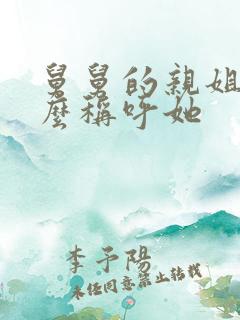 舅舅的親姐
麼稱呼她
李予陽
未经同意禁止转载